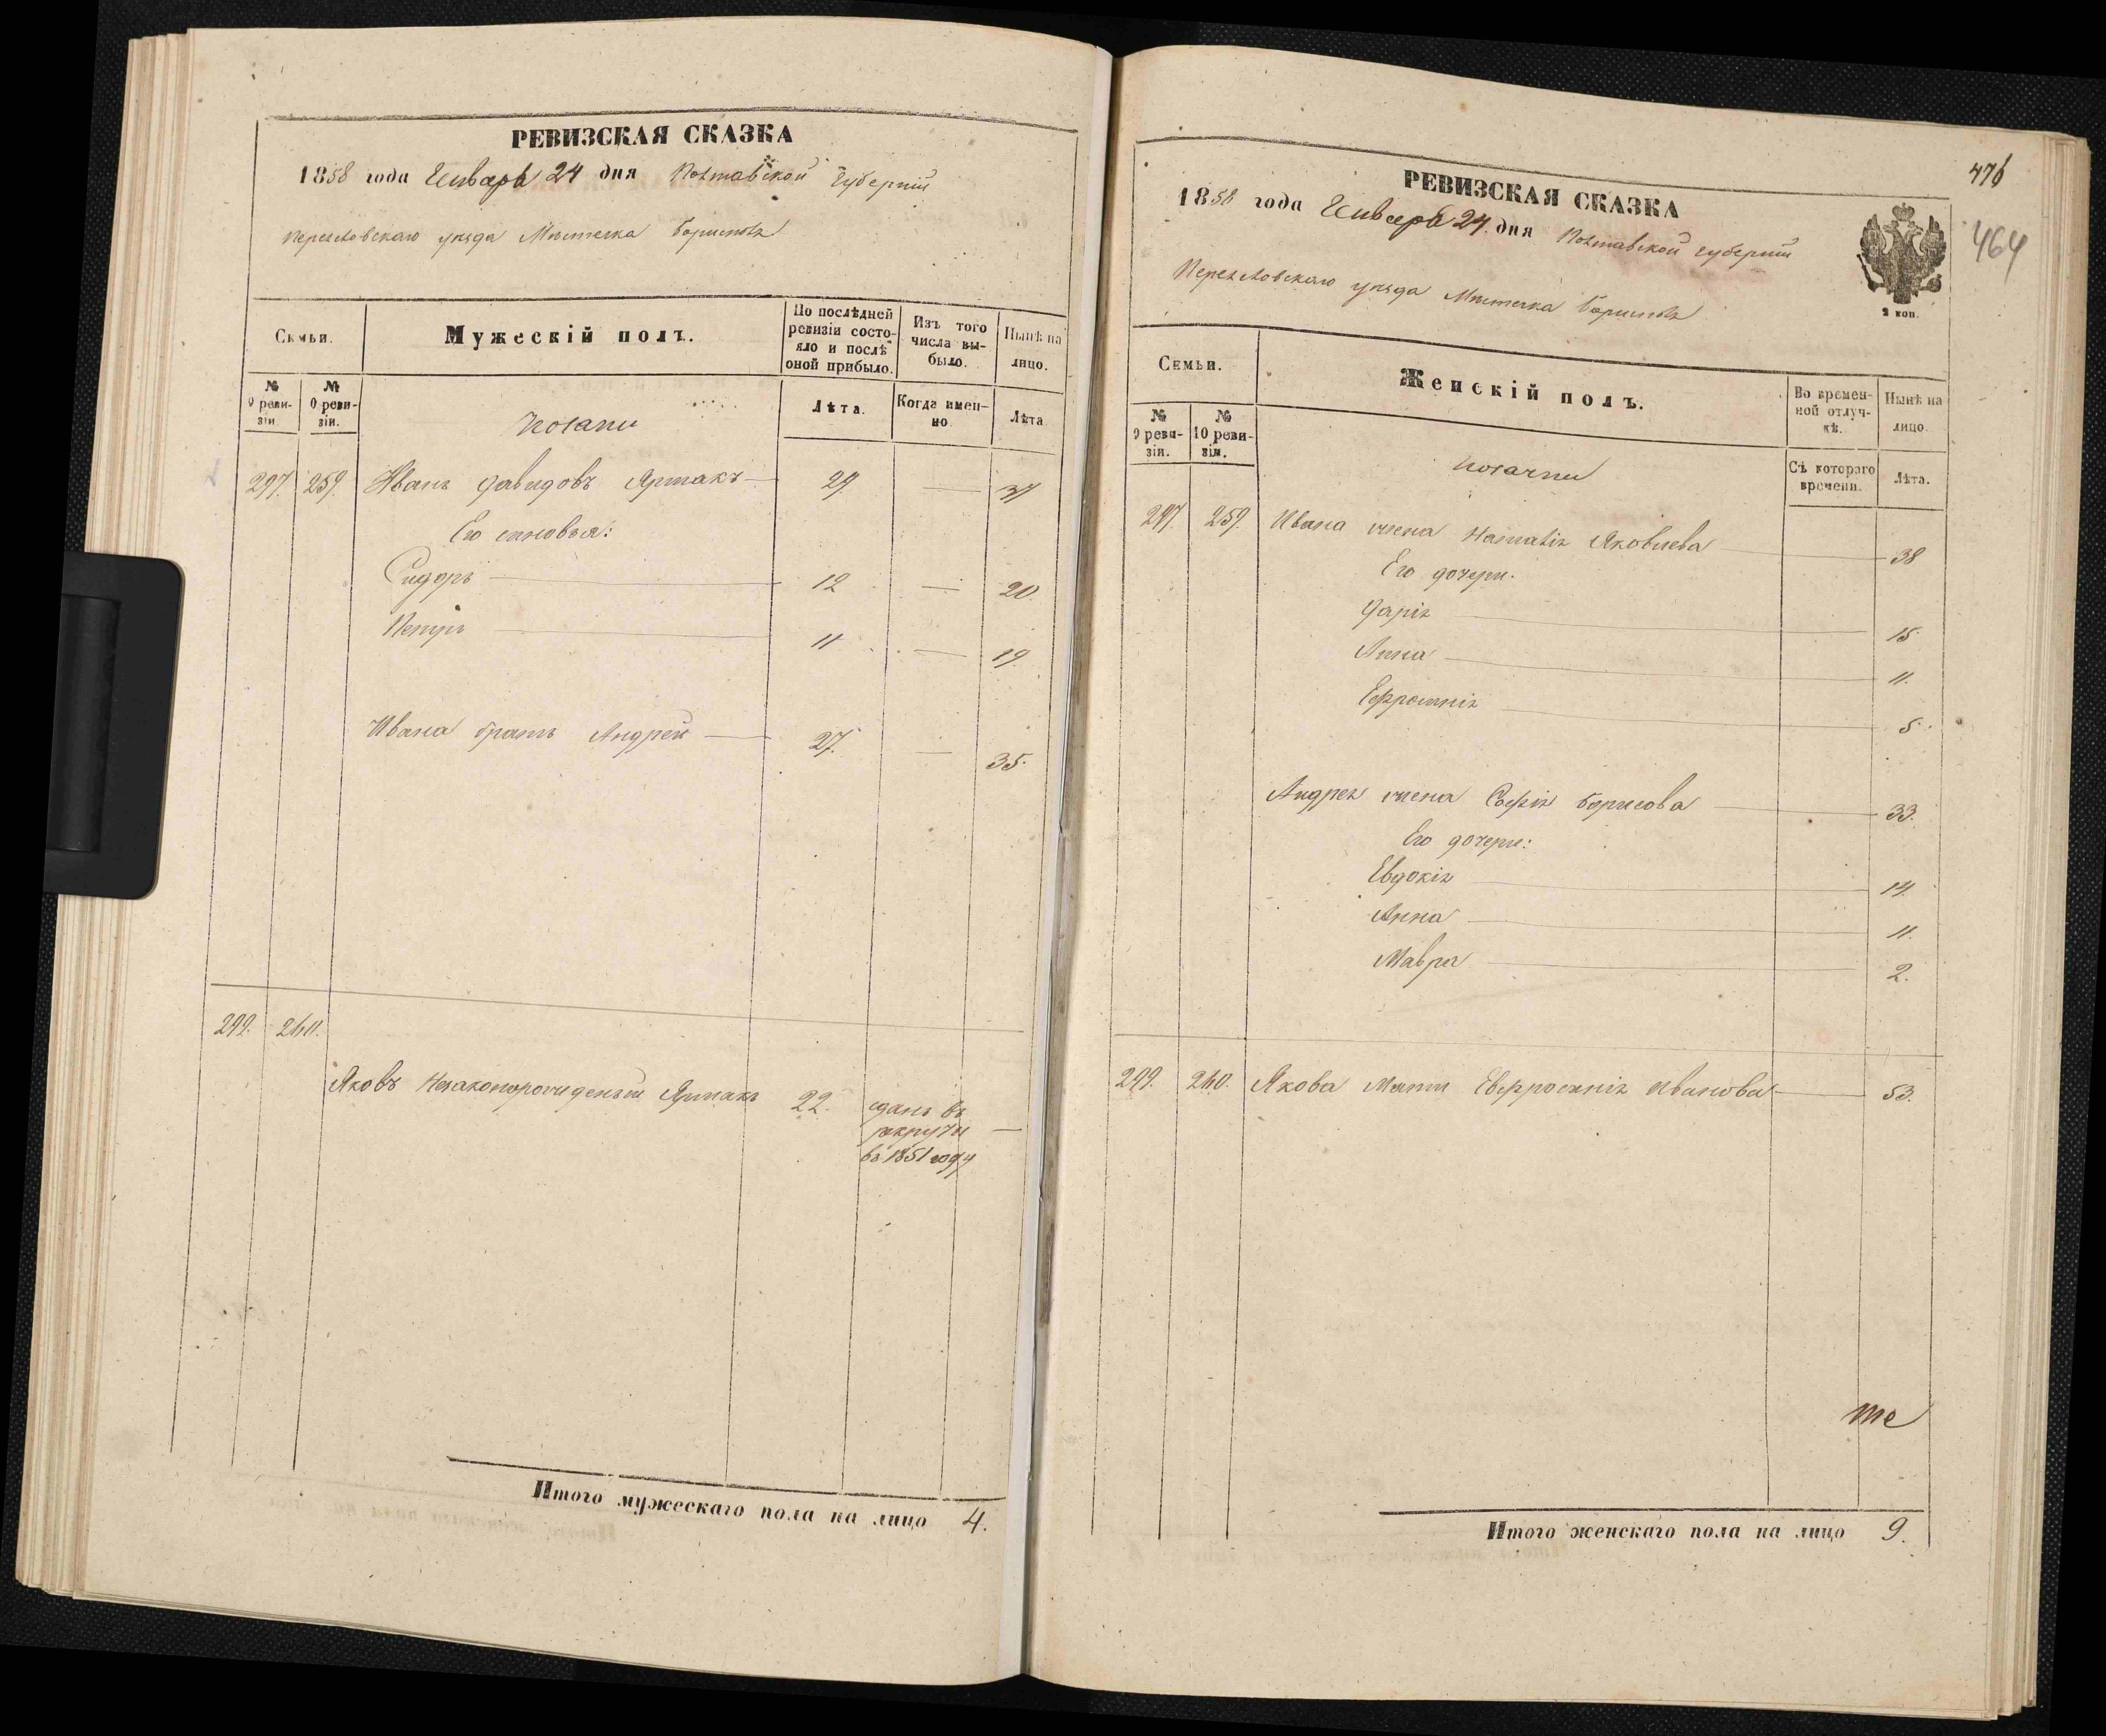 РЕВИЗСКАЯ СКАЗКА
1858 года Генваря 24 дня Полтавской Губерніи
Переяловскаго уѣзда Мѣстечка Борисполя
Семьи.
Мужескій полъ.
По послѣдней ревизіи состояло и послѣ оной прибыло.
Изъ того числа выбыло.
Нынѣ на лицо.
№ 9 ревизіи.
№ 10 ревизіи.
Козаки
Лѣта.
Когда именно.
Лѣта
297. 259. Иванъ Давидовъ Ярмакъ — 29 — 37
Его сыновья:
Сидоръ — 12 — 20.
Петръ — 11 — 19.
Ивана братъ Андрей — 27. — 35.
299. 260.
Яковъ Незаконорожденый Ярмакъ 22. сданъ въ
рекруты —
въ 1851 году
Итого мужескаго пола на лицо 4.
476
464
РЕВИЗСКАЯ СКАЗКА
1858 года Генваря 24. дня Полтавской губерніи
Переяловскаго уѣзда Мѣстечка Борисполя
2 коп.
Семьи.
Женскій полъ.
Во временной отлучкѣ.
Нынѣ на лицо.
№ 9 ревизіи.
№ 10 ревизіи.
Козачки
Съ котораго времени.
Лѣта.
297. 259. Ивана жена Наталія Яковлева — 38
Его дочери.
Дарія — 15.
Анна — 11.
Ефросинія — 5.
Андрея жена Софія Борисова — 33.
Его дочери:
Евдокія — 14.
Анна — 11.
Мавра — 2.
299. 260. Якова Мати Евфросинія Иванова — 53.
те
Итого женскаго пола на лицо 9.